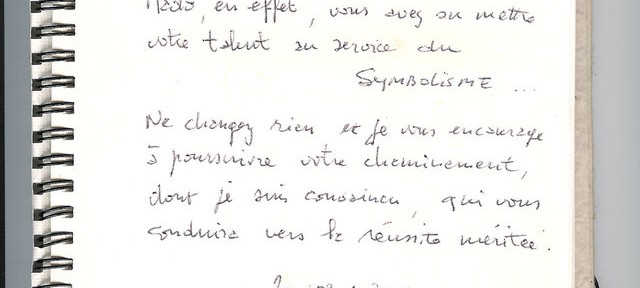 en effet, vous avez su mettre
votre talent au service du
SYMBOLISME ...
Ne changez rien et je vous encourage
à poursuivre votre cheminement,
dont je suis convaincu, qui vous
conduira vers la réussite méritée.